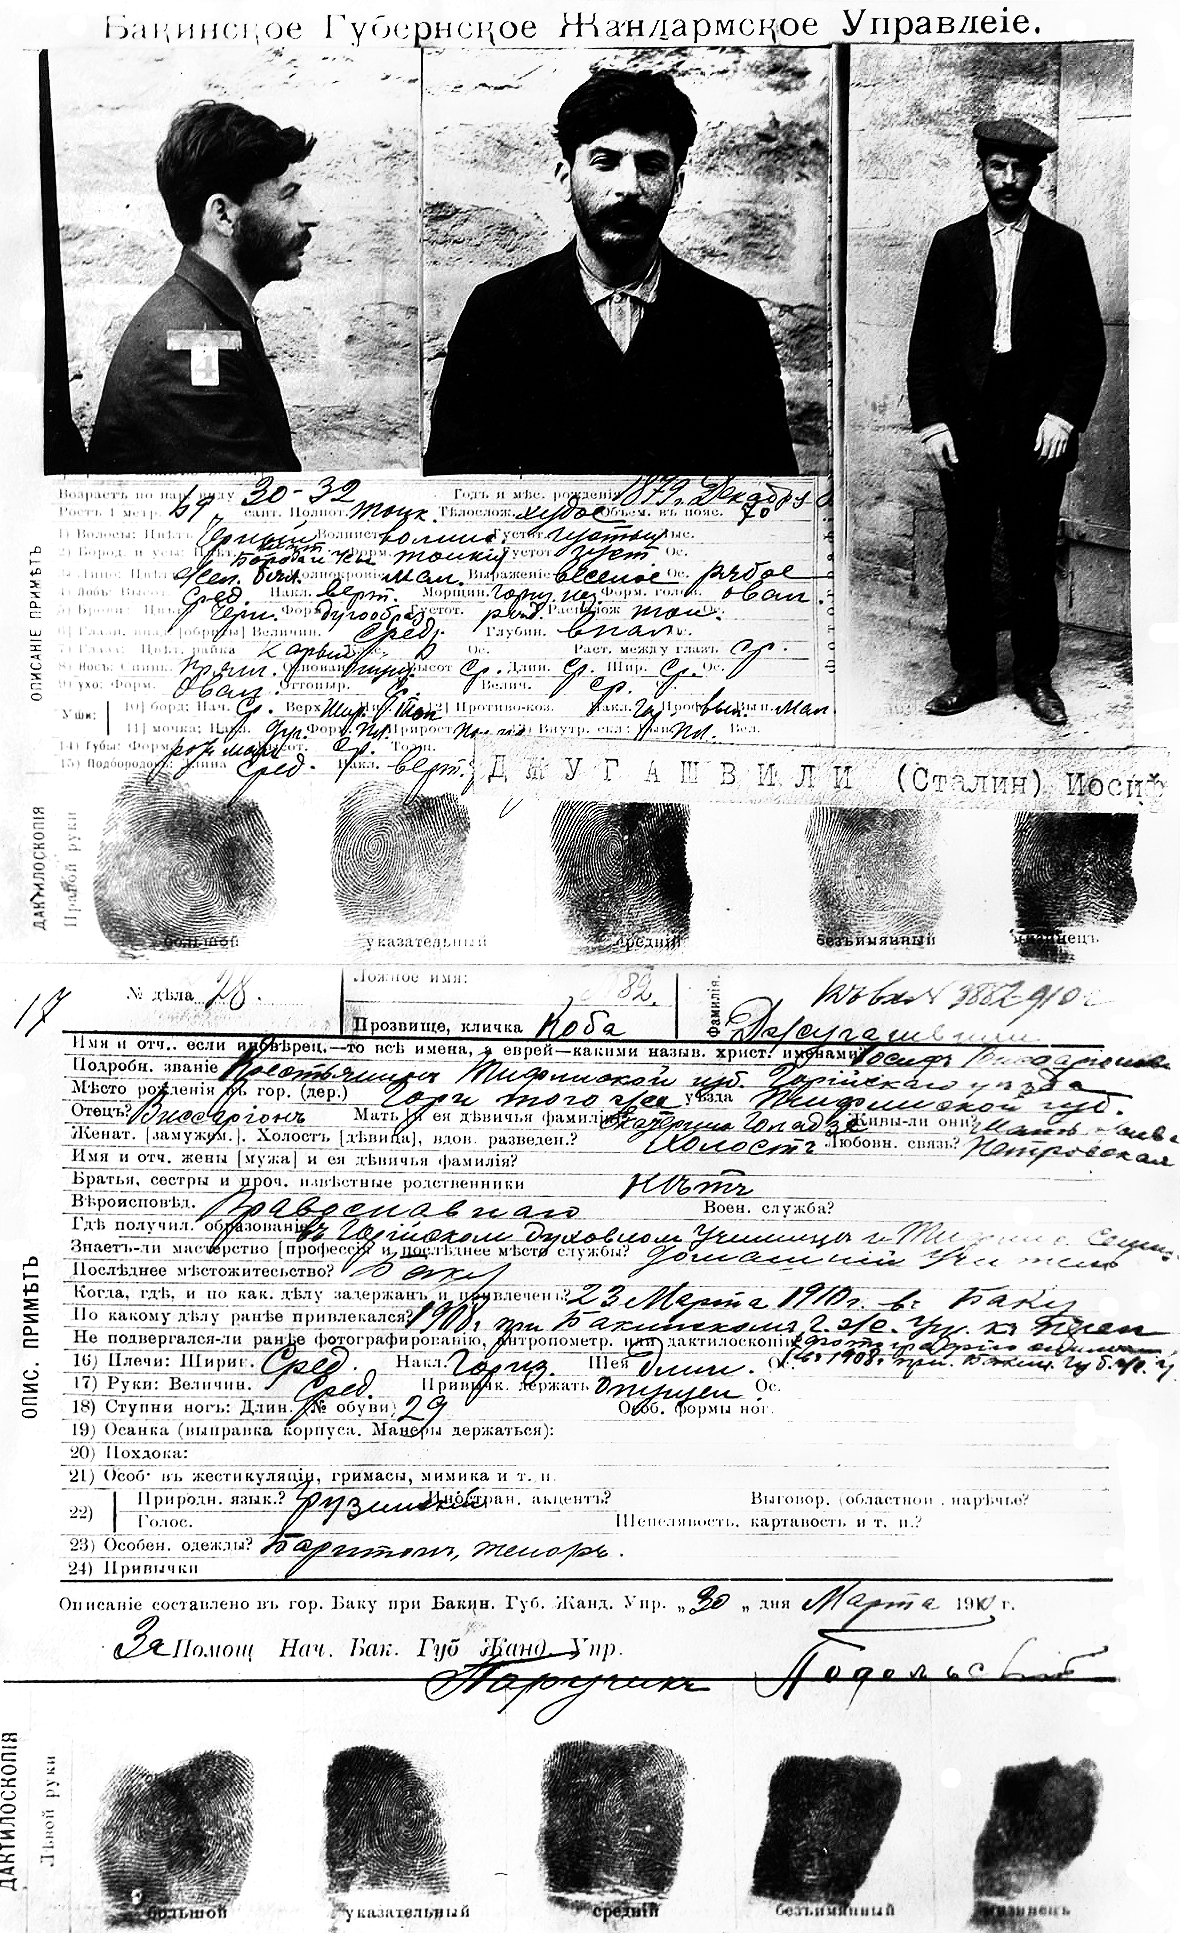 Бакинское Губернское Жандармское Управленіе.
4
ОПИСАНІЕ ПРИМѢТЪ
Возрастъ по нар. виду 30-32 Годъ и мѣс. рожденія 1879 г. Декабря
Ростъ 1 метр. 69 сант. Полнот. тонк. Тѣлослож. худое Объем. въ пояс. 70
1) Волосы: Цвѣтъ Черный Волнист. волнис. Густот. густые
2) Бород. и усы: Цвѣт. Борода и усы Форм. тонкія Густот. густ Ос.
мал. Выраженіе веселое Ос. рябое
4) Лобъ: Высот. Сред. Накл. верт. Морщин. Форм. голов. овал.
5) Брови: Цвѣт. Черн. Форм. дугообраз. Густот. рѣд. Располож.
Величин. Сред. Глубин. впалы.
Карый Ос. Раст. между глазъ ср.
8) Носъ: Спинк. прям. Основан. Высот ср. Длин. ср. Шир. ср. Ос.
9) Ухо: Форм. Овал. Оттопыр. Ср. Велич. ср.
Уши: 10] борд: Нач. Ср. Верх. Противо-коз. Накл. Проф. вып. Вып. мал.
11] мочка: Форм. Пл. Прирост. Внутр. скл: пл. Вел.
14) Губы: Форм. Высот. Ср. Толщ.
15) Подбородокъ: Длина Сред. Накл. верт.
ДЖУГАШВИЛИ (Сталин) Иосиф
ДАКТИЛОСКОПІЯ
Правой руки
большой указательный средній безъимянный мизинецъ
17
№ дѣла 28. Ложное имя: 82. Фамилія. Къ вх. № 3882-910 г
Прозвище, кличка Коба Джугашвили
Имя и отч.. если иновѣрец,—то всѣ имена, а еврей—какими назыв. христ. именами? Іосифъ Виссаріонов
Подробн. званіе Крестьянинъ Тифлисской губ. Горійскаго уѣзда
Мѣсто рожденія въ гор. (дер.) Гори того же уѣзда Тифлисской губ.
Отецъ? Виссаріонъ Мать [и ея дѣвичья фамилія] Екатерина Геладзе Живы-ли они? Мать жива
Женат. [замужем.]. Холостъ [дѣвица], вдов. разведен.? Холостъ Любовн. связь? Петровская
Имя и отч. жены [мужа] и ея дѣвичья фамилія?
Братья, сестры и проч. извѣстные родственники нѣтъ
Вѣроисповѣд. Православнаго Воен. служба?
Гдѣ получил. образованіе въ Горійскомъ духовномъ Училищѣ и Тифлис. Семин.
Знаетъ-ли мастерство [профессія и послѣднее мѣсто службы? домашній Учитель
Послѣднее мѣстожительство? Баку
Когда, гдѣ, и по как. дѣлу задержанъ и привлечен? 23 Марта 1910 г. въ Баку
По какому дѣлу ранѣе привлекался? 1908 г. при Бакинскомъ Г. Ж. Упр. къ переп
Не подвергался-ли ранѣе фотографированію, антропометр. или дактилоскопіи? фотографію снимал
(въ 1908 г. при Бакин. Губ. Ж. У.
ОПИС. ПРИМѢТЪ
16) Плечи: Шириг. Сред. Накл. Гориз. Шея длин. О.
17) Руки: Величин. Сред. Привычк. держать опущен. Ос.
18) Ступни ногъ: Длин. (№ обуви) 29 Особ. формы ног.
19) Осанка (выправка корпуса. Манеры держаться):
20) Походка:
21) Особ. въ жестикуляціи, гримасы, мимика и т. п.
22) Природн. язык.? Грузинскій Иностран. акцентъ? Выговор. (областной, нарѣчье?
Голос. Шепелявость, картавость и т. п.?
23) Особен. одежды? Баритонъ, теноръ.
24) Привычки
Описаніе составлено въ гор. Баку при Бакин. Губ. Жанд. Упр. „30„ дня Марта 1910 г.
За Помощ Нач. Бак. Губ Жанд Упр.
Поручикъ Подольскій
ДАКТИЛОСКОПІЯ
Лѣвой руки
большой указательный средній безъимянный мизинецъ